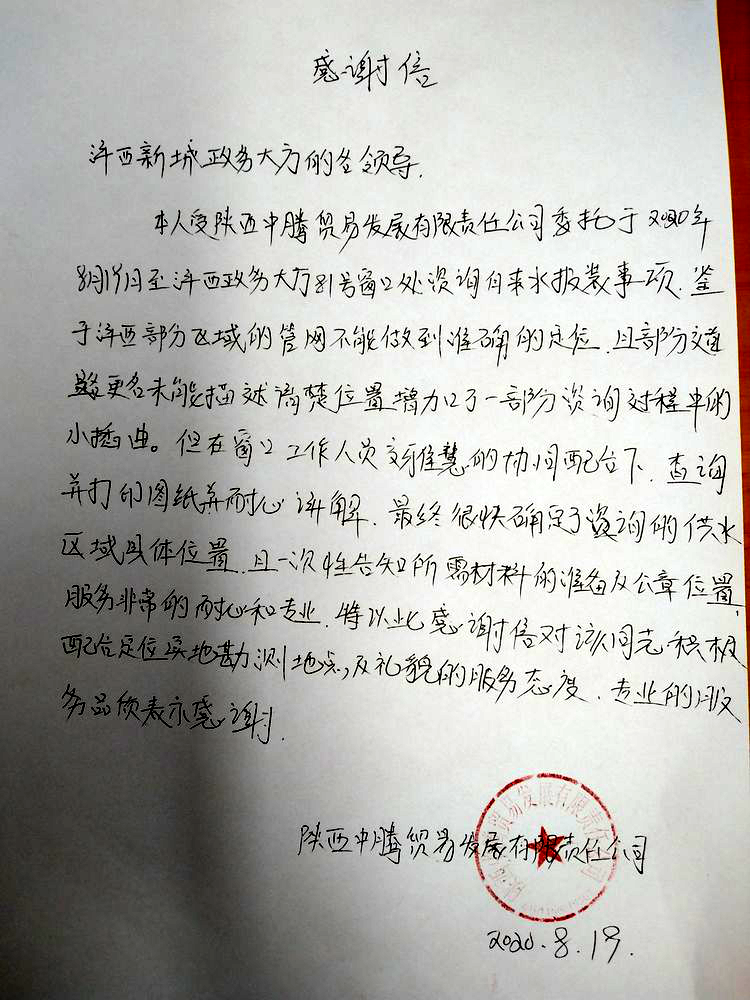 感谢信
沣西新城政务大方的各领导.
本人受陕西中腾贸易发展有限责任公司委托于2020年
8月19日至沣西政务大厅81号窗口处咨询自来水报装事项.鉴
于沣西部分区域的管网不能做到准确的定位.且部分道
路更名未能描述清楚位置增加了一部分咨询过程中的
小插曲。但在窗口工作人员雅慧的协同配合下.查询
并打印图纸并耐心讲解.最终很快确定了咨询的供水
区域具体位置.且一次性告知所需材料的准备及公章位置,
服务非常的耐心和专业.特以此感谢信对该同志积极
配合定位实地勘测地点,及礼貌的服务态度.专业的服
务品质表示感谢.
贸易发展有限责任公司
陕西中腾贸易发展有限责任公司
2020.8.19.